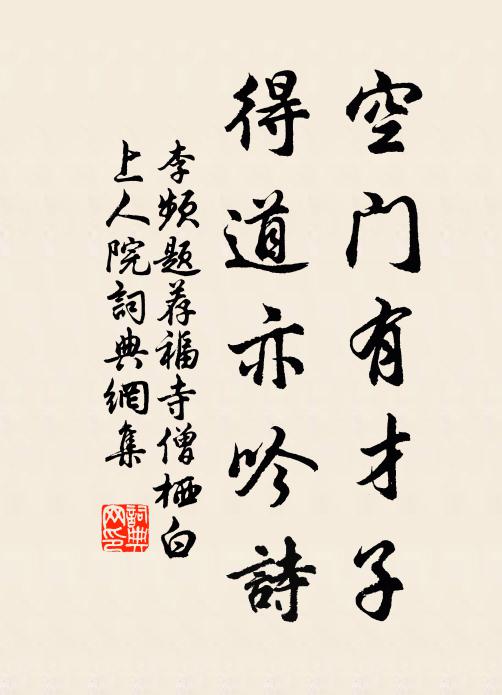 空门有才子
得道亦吟詩
李频题荐福寺僧栖白
上人院詞典網集
詞典网印